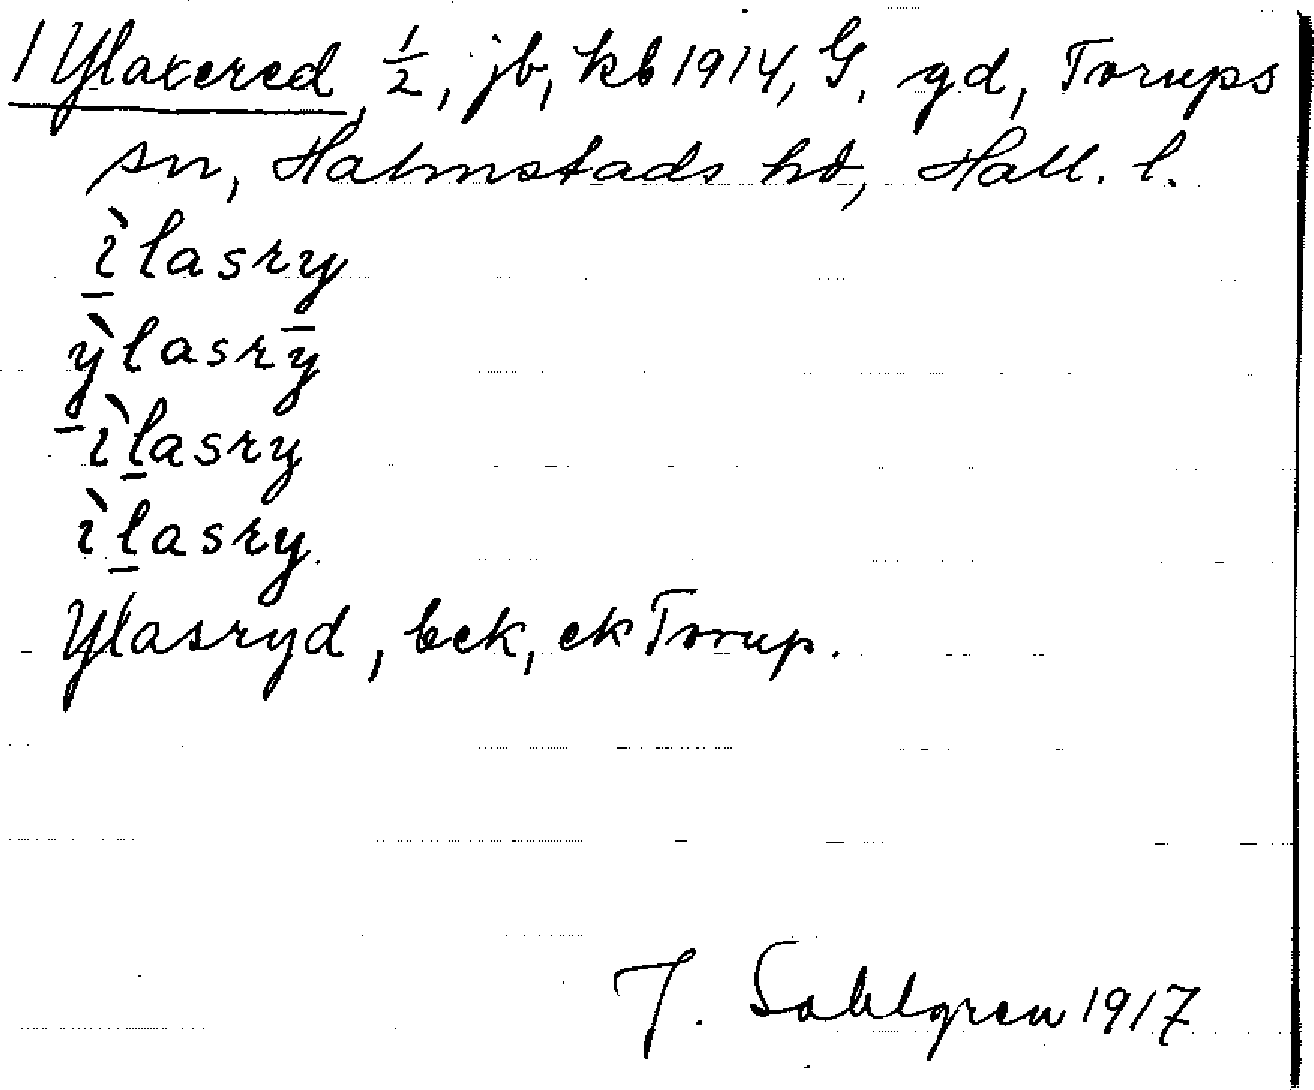 1 Ylaxered, 1/2, jb, kb 1914, G. gd, Torups
sn, Halmstads hd, Hall. l.
ı̱̀lasry
ỳ̱lasrȳ
ı̀ḻasry
ı̀ḻasry.
Ylasryd, bek, ek Torup.
J. Sahlgren 1917